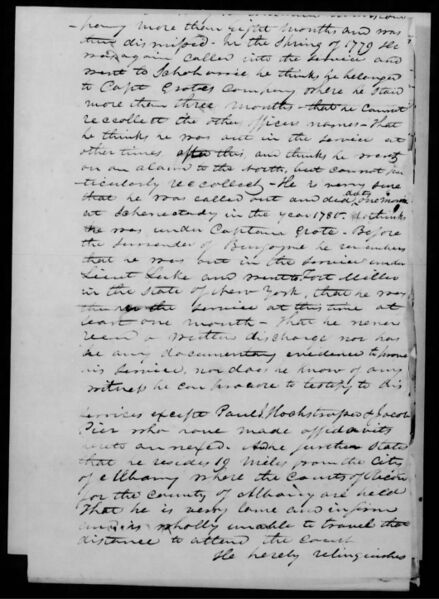 pany more than eight months and was
then dismissed. In the Spring of 1779 he
was again called into the service and
went to Schoharie he thinks he belonged
to Capt Grotes Company where he staid
more than three months that he cannot
reccollect the other officers names - That
he thinks he was out in the service at
other times after this, and thinks he went
on an alarm to the North, but cannot par
ticularly reccollect - He is very sure
that he was called out and did duty one month
at Schenectady in the year 1780. thinks
he was under Captain Grote - Before
the surrender of Burgoyne he remembers
that he was out in the service under
Lieut Lake and went to Fort Miller
in the State of New York, that he was
the service at this time at
least one month - That he never
recd a written discharge nor has
he any documentary evidence to prove
his service, nor does he know of any
witness he can procure to testify to his
services except Paul Hochstrasser & Jacob
Pier who have made affidavits
hereto annexed. And further State
that he resides 19 Miles from the City
of Albany where the Courts of
for the County of Albany are held
That he is very lame and infirm
and is wholly unable to travel that
distance to attend the Court
He hereby relinquishes